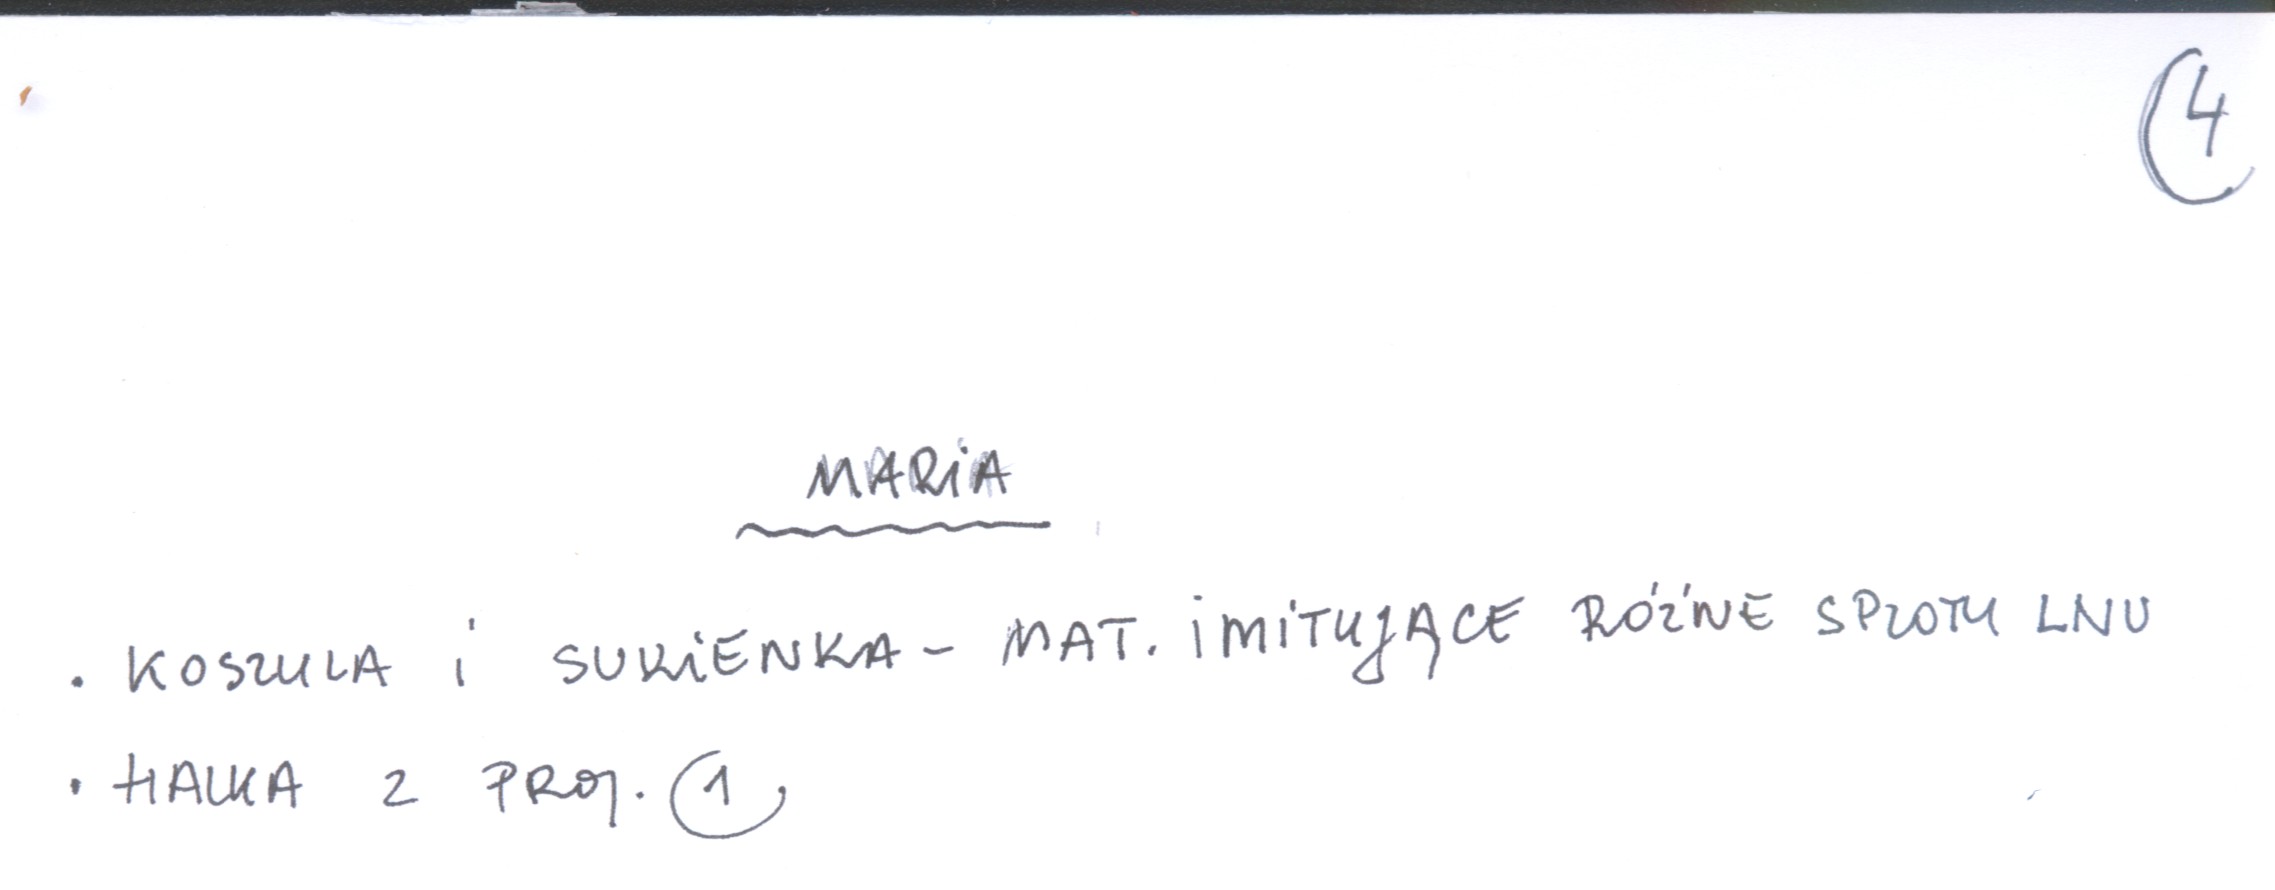 4
MARIA
• KOSZULA i SUKIENKA - MAT. iMiTUJĄCE RÓŻNE SPLOTY LNU
• HALKA Z PROJ. 1